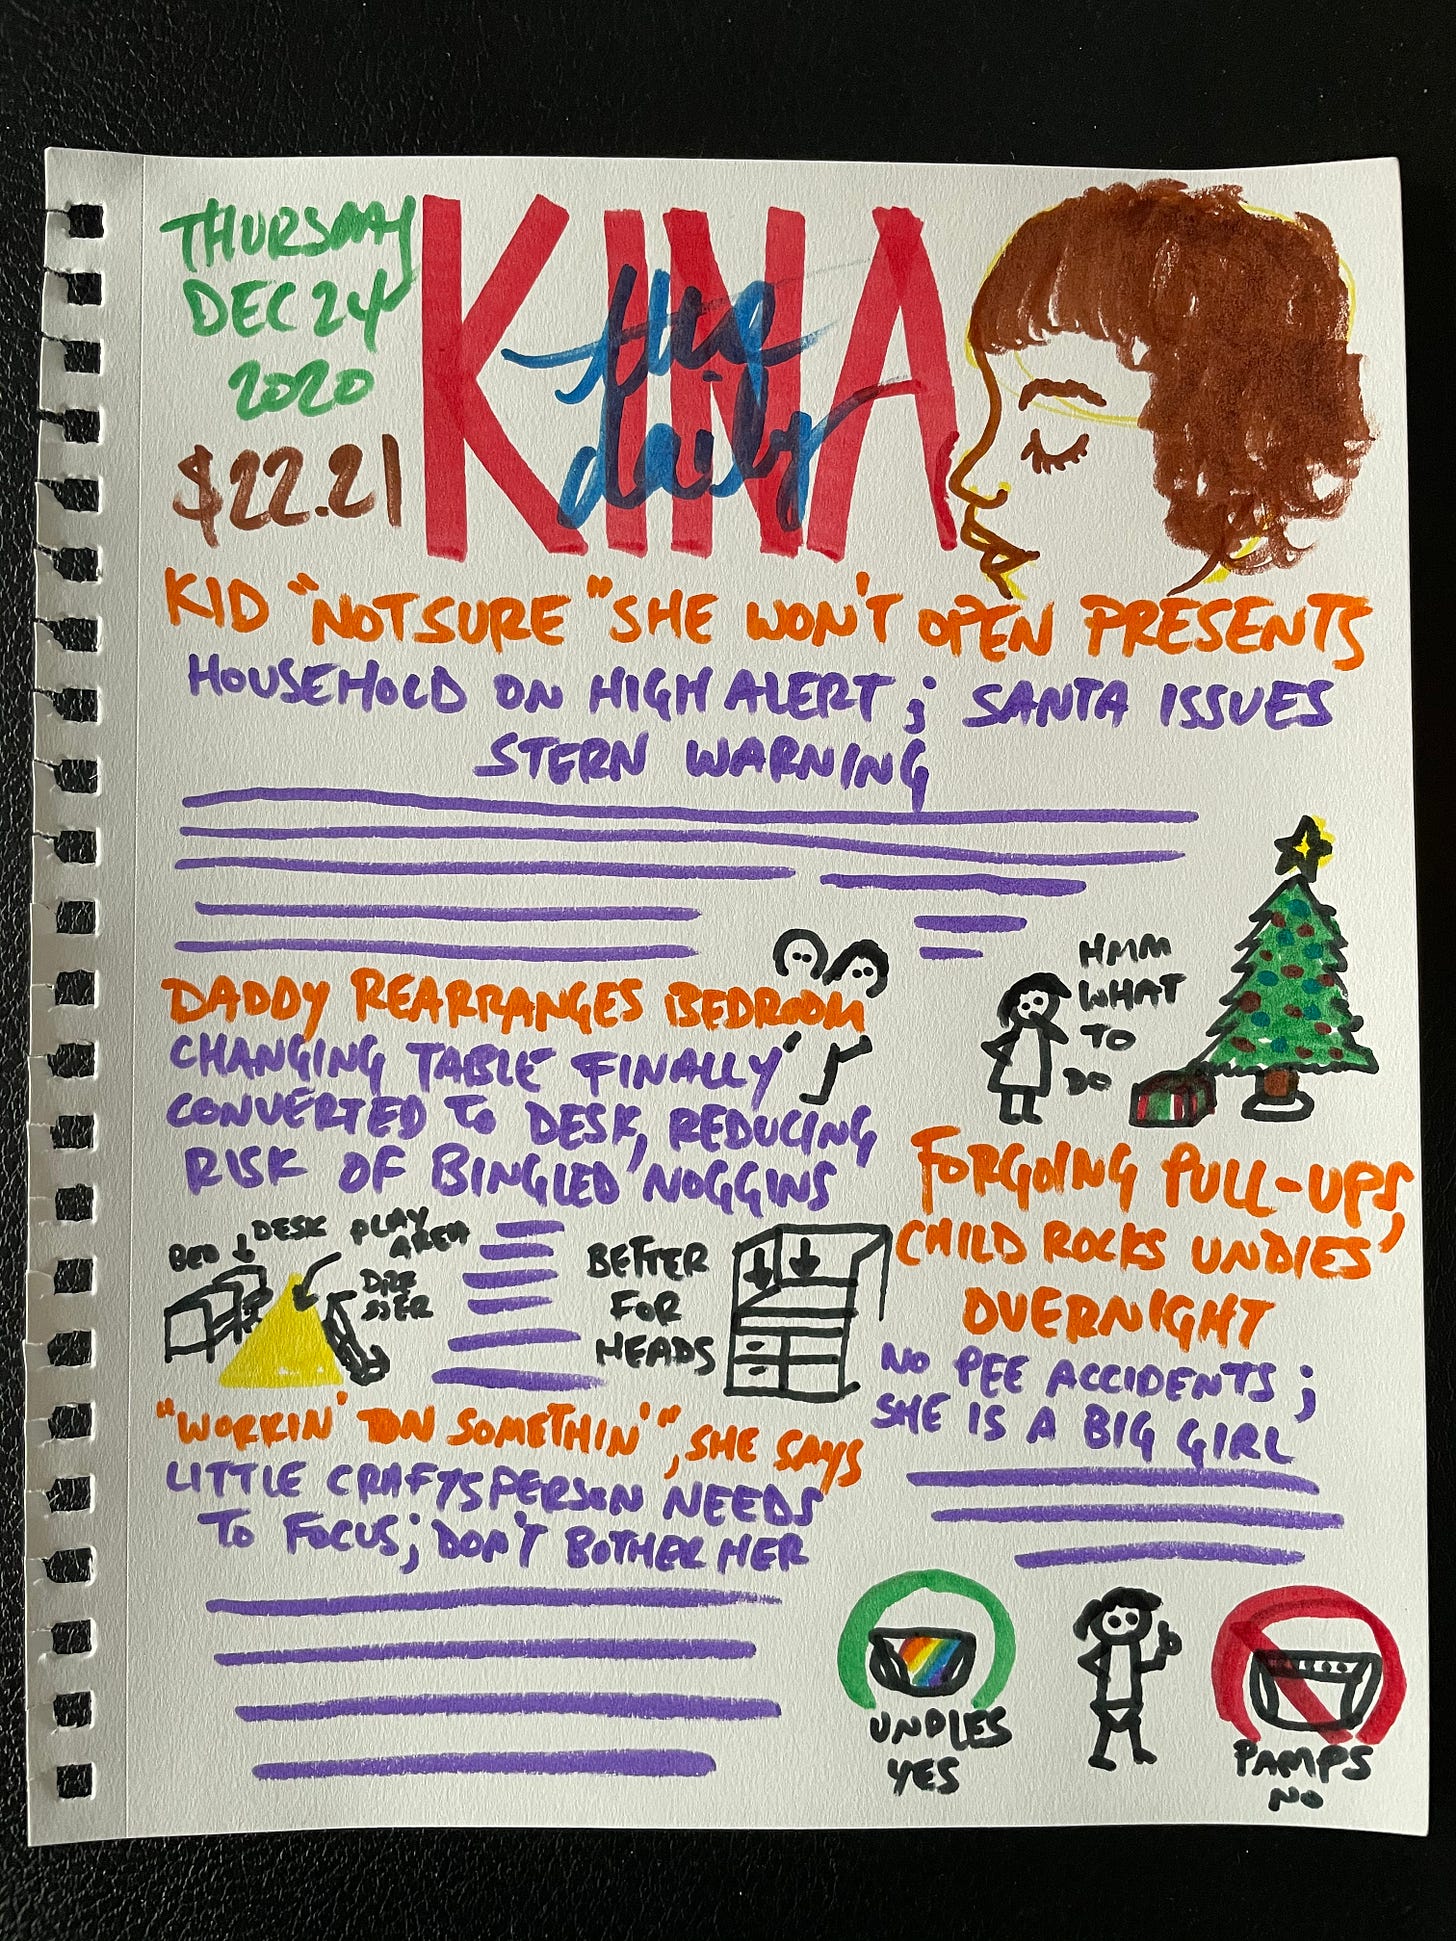 THURSDAY
DEC 24
2020
$22.21
KINA
the
daily
KID "NOT SURE" SHE WON'T OPEN PRESENTS
HOUSEHOLD ON HIGH ALERT; SANTA ISSUES
STERN WARNING
HMM
WHAT
TO
DO
DADDY REARRANGES BEDROOM
CHANGING TABLE FINALLY
CONVERTED TO DESK, REDUCING
RISK OF BINGLED NOGGINS
BED
DESK
PLAY
AREA
DRE
SSER
BETTER
FOR
HEADS
"WORKIN' ON SOMETHIN'", SHE SAYS
LITTLE CRAFTSPERSON NEEDS
TO FOCUS; DON'T BOTHER HER
FORGOING PULL-UPS,
CHILD ROCKS UNDIES
OVERNIGHT
NO PEE ACCIDENTS;
SHE IS A BIG GIRL
UNDIES
YES
PAMPS
NO